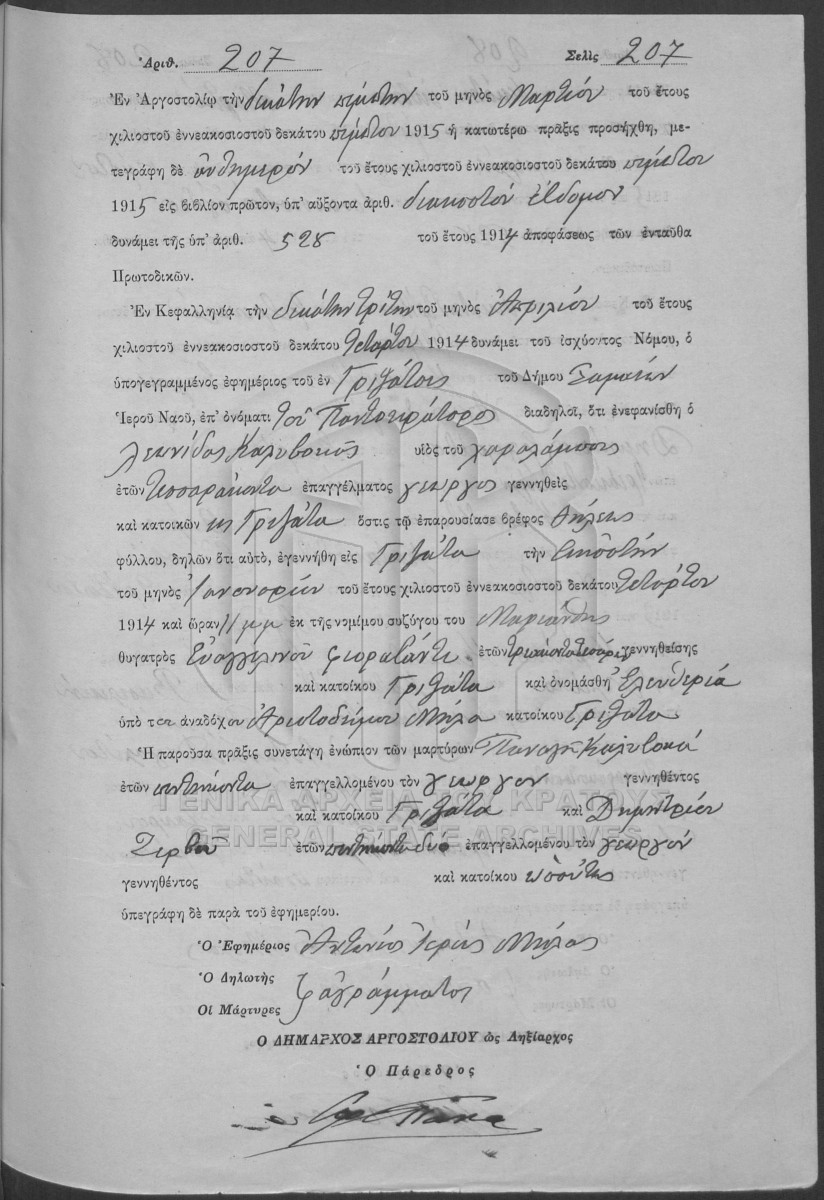 Ἀριθ. 207 Σελὶς 207
Ἐν Ἀργοστολίῳ τὴν δεκάτην πέμπτην τοῦ μηνὸς Μαρτίου τοῦ ἔτους
χιλιοστοῦ ἐννεακοσιοστοῦ δεκάτου πέμπτου 1915 ἡ κατωτέρω πρᾶξις προσήχθη, με-
τεγράφη δὲ αὐθημερόν τοῦ ἔτους χιλιοστοῦ ἐννεακοσιοστοῦ δεκάτου πέμπτου
1915 εἰς βιβλίον πρῶτον, ὑπ' αὔξοντα ἀριθ. διακοστόν ἕβδομον
δυνάμει τῆς ὑπ' ἀριθ. 528 τοῦ ἔτους 1914 ἀποφάσεως τῶν ἐνταῦθα
Πρωτοδικῶν.
Ἐν Κεφαλληνίᾳ τὴν δεκάτην τρίτην τοῦ μηνὸς Ἀπριλίου τοῦ ἔτους
χιλιοστοῦ ἐννεακοσιοστοῦ δεκάτου τετάρτου 1914 δυνάμει τοῦ ἰσχύοντος Νόμου, ὁ
ὑπογεγραμμένος ἐφημέριος τοῦ ἐν Γριζάτοις τοῦ Δήμου Σαμαίων
Ἱεροῦ Ναοῦ, ἐπ' ὀνόματι τοῦ Παντοκράτορος διαδηλοῖ, ὅτι ἐνεφανίσθη ὁ
Λεωνίδας Καλυβωκᾶς υἱὸς τοῦ χαραλάμπους
ἐτῶν τεσσαράκοντα ἐπαγγέλματος γεωργός γεννηθεὶς
καὶ κατοικῶν εἰς Γριζάτα ὅστις τῷ ἐπαρουσίασε βρέφος θήλεος
φύλλου, δηλῶν ὅτι αὐτὸ, ἐγεννήθη εἰς Γριζάτα τὴν εἰκοστήν
τοῦ μηνὸς Ἰανουαρίου τοῦ ἔτους χιλιοστοῦ ἐννεακοσιοστοῦ δεκάτου τετάρτου
1914 καὶ ὥραν 11 μμ ἐκ τῆς νομίμου συζύγου του Μαριάνθης
θυγατρὸς Εὐαγγελινοῦ Φιοραβάντε ἐτῶν τριάκοντα τεσσάρων γεννηθείσης
καὶ κατοίκου Γριζάτα καὶ ὀνομάσθη Ἐλευθερία
ὑπὸ του ἀναδόχου Ἀριστοδήμου Μήλα κατοίκου Γριζάτα
Ἡ παροῦσα πρᾶξις συνετάγη ἐνώπιον τῶν μαρτύρων Παναγῆ Καλυβωκά
ἐτῶν πεντήκοντα ἐπαγγελλομένου τὸν γεωργόν γεννηθέντος
καὶ κατοίκου Γριζάτα καὶ Δημητρίου
Ζερβου ἐτῶν πεντήκοντα δυο ἐπαγγελλομένου τὸν γεωργόν
γεννηθέντος καὶ κατοίκου ὡσαύτως
ὑπεγράφη δὲ παρὰ τοῦ ἐφημερίου.
Ὁ Ἐφημέριος Ἀντωνίος Ἱερεύς Μήλας
Ὁ Δηλωτὴς
Οἱ Μάρτυρες ἀγράμματοι
Ο ΔΗΜΑΡΧΟΣ ΑΡΓΟΣΤΟΛΙΟΥ ὡς Ληξίαρχος
Ὁ Πάρεδρος
ΓΕΝΙΚΑ ΑΡΧΕΙΑ ΤΟΥ ΚΡΑΤΟΥΣ
GENERAL STATE ARCHIVES